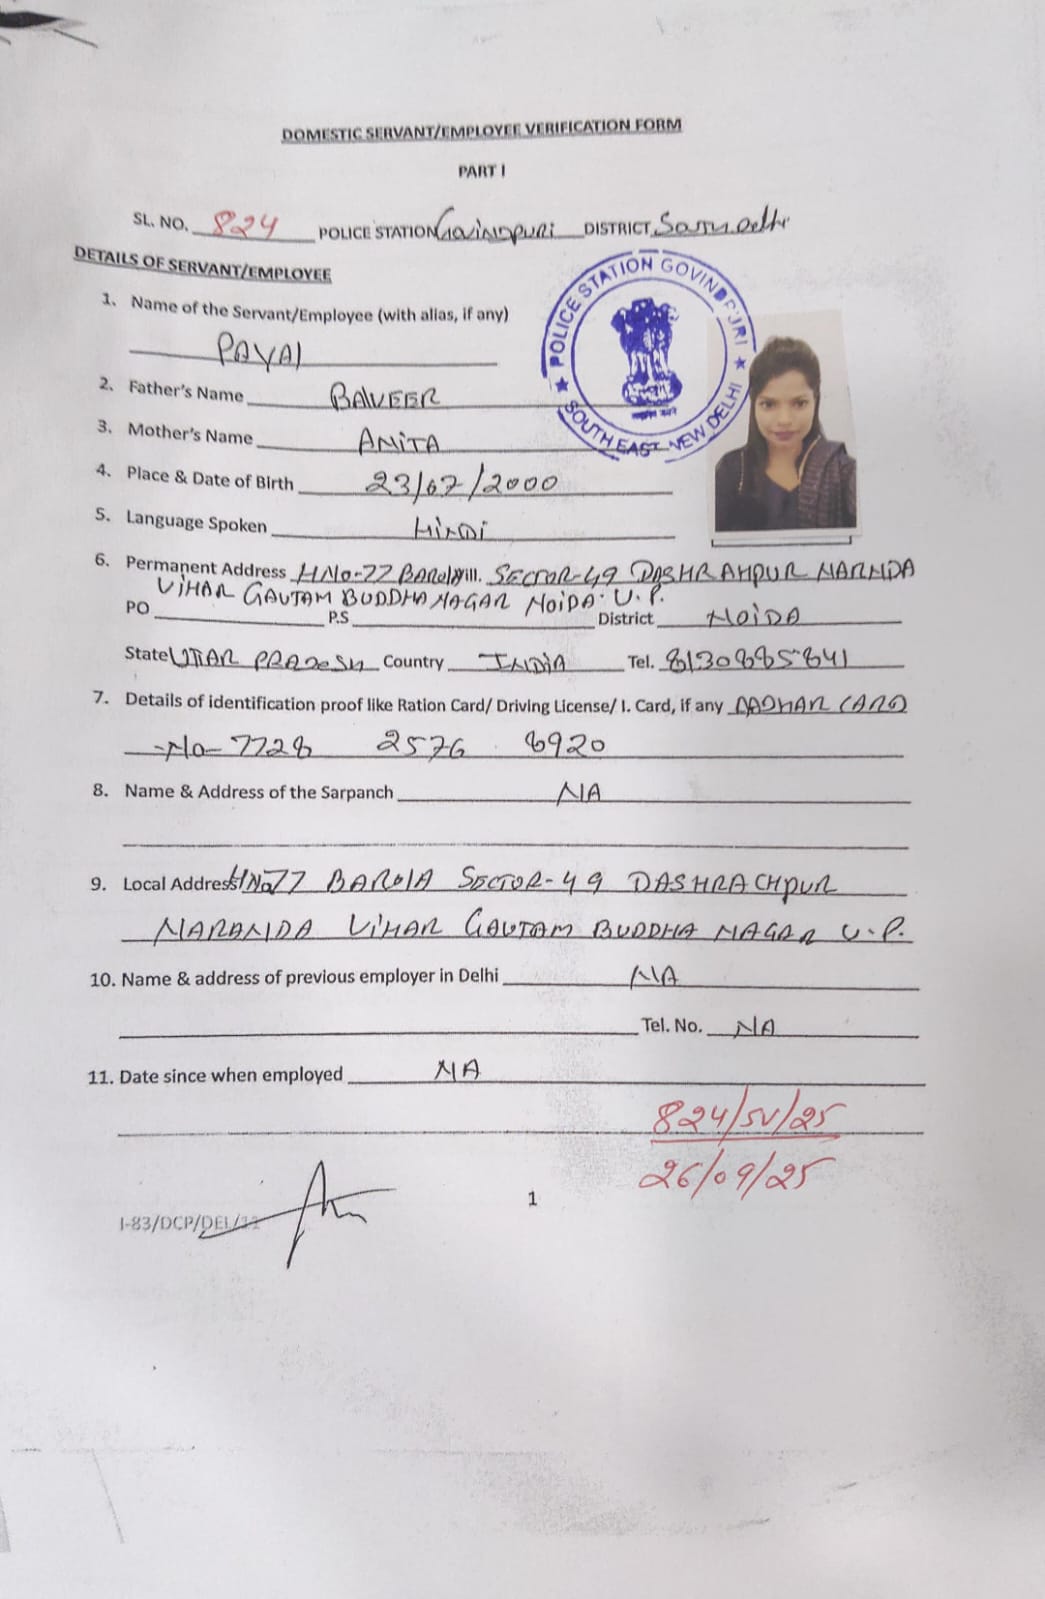 DOMESTIC SERVANT/EMPLOYEE VERIFICATION FORM
PART I
SL. NO. 824 POLICE STATION GOVINDPURI DISTRICT South Delhi
DETAILS OF SERVANT/EMPLOYEE
POLICE STATION GOVINDPURI ★ SOUTH EAST NEW DELHI ★
1. Name of the Servant/Employee (with alias, if any)
PAYAL
2. Father's Name BALVEER
3. Mother's Name ANITA
4. Place & Date of Birth 23/07/2000
5. Language Spoken HINDI
6. Permanent Address HNo-77 BAROLA Vill. SECTOR-49 DASHRAHPUR NARMDA
VIHAR GAUTAM BUDDHA NAGAR NOIDA. U.P.
PO P.S District NOIDA
State UTTAR PRADESH Country INDIA Tel. 8130885841
7. Details of identification proof like Ration Card/ Driving License/ I. Card, if any AADHAR CARD
-No- 7728 2576 8920
8. Name & Address of the Sarpanch NA
9. Local Address HNo77 BAROLA SECTOR-49 DASHRACHPUR
NARAMDA VIHAR GAUTAM BUDDHA NAGAR U.P.
10. Name & address of previous employer in Delhi NA
Tel. No. NA
11. Date since when employed NA
824/SV/25
26/09/25
1
I-83/DCP/DEL/